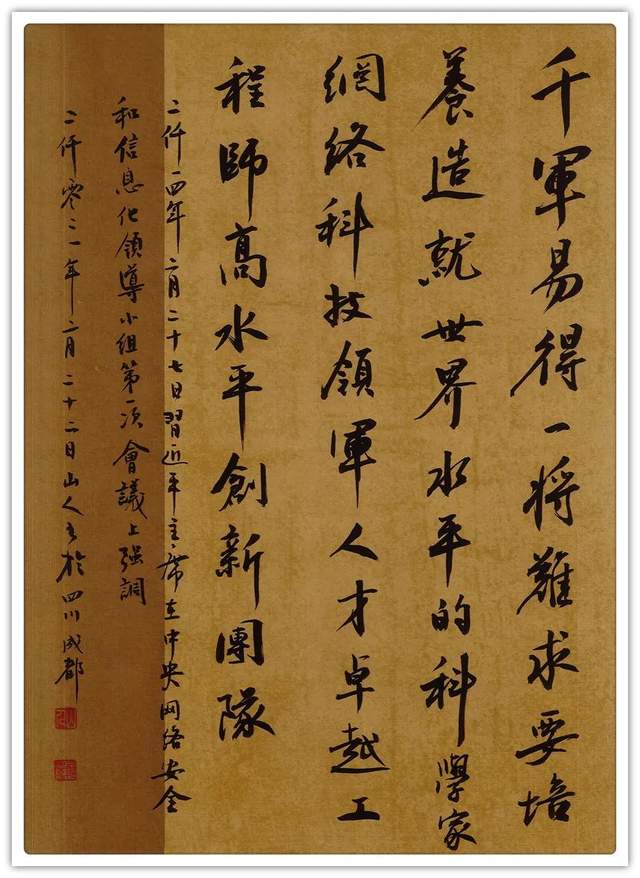 千軍易得一将難求要培
養造就世界水平的科學家
網絡科技領軍人才卓越工
程師高水平創新團隊
二仟一四年二月二十七日習近平主席在中央网络安全
和信息化領導小組第一次會議上强調
二仟零二一年二月二十二日山人於四川成都